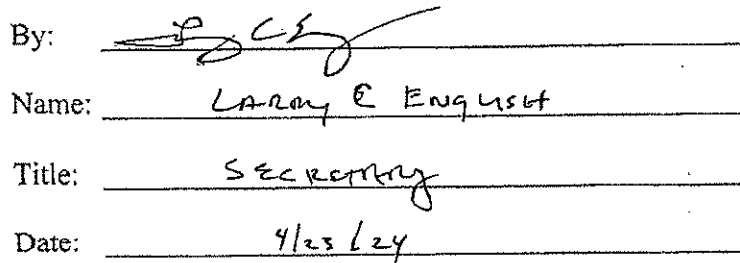 By:
Name: LARRY E ENGLISH
Title: SECRETARY
Date: 4/23/24